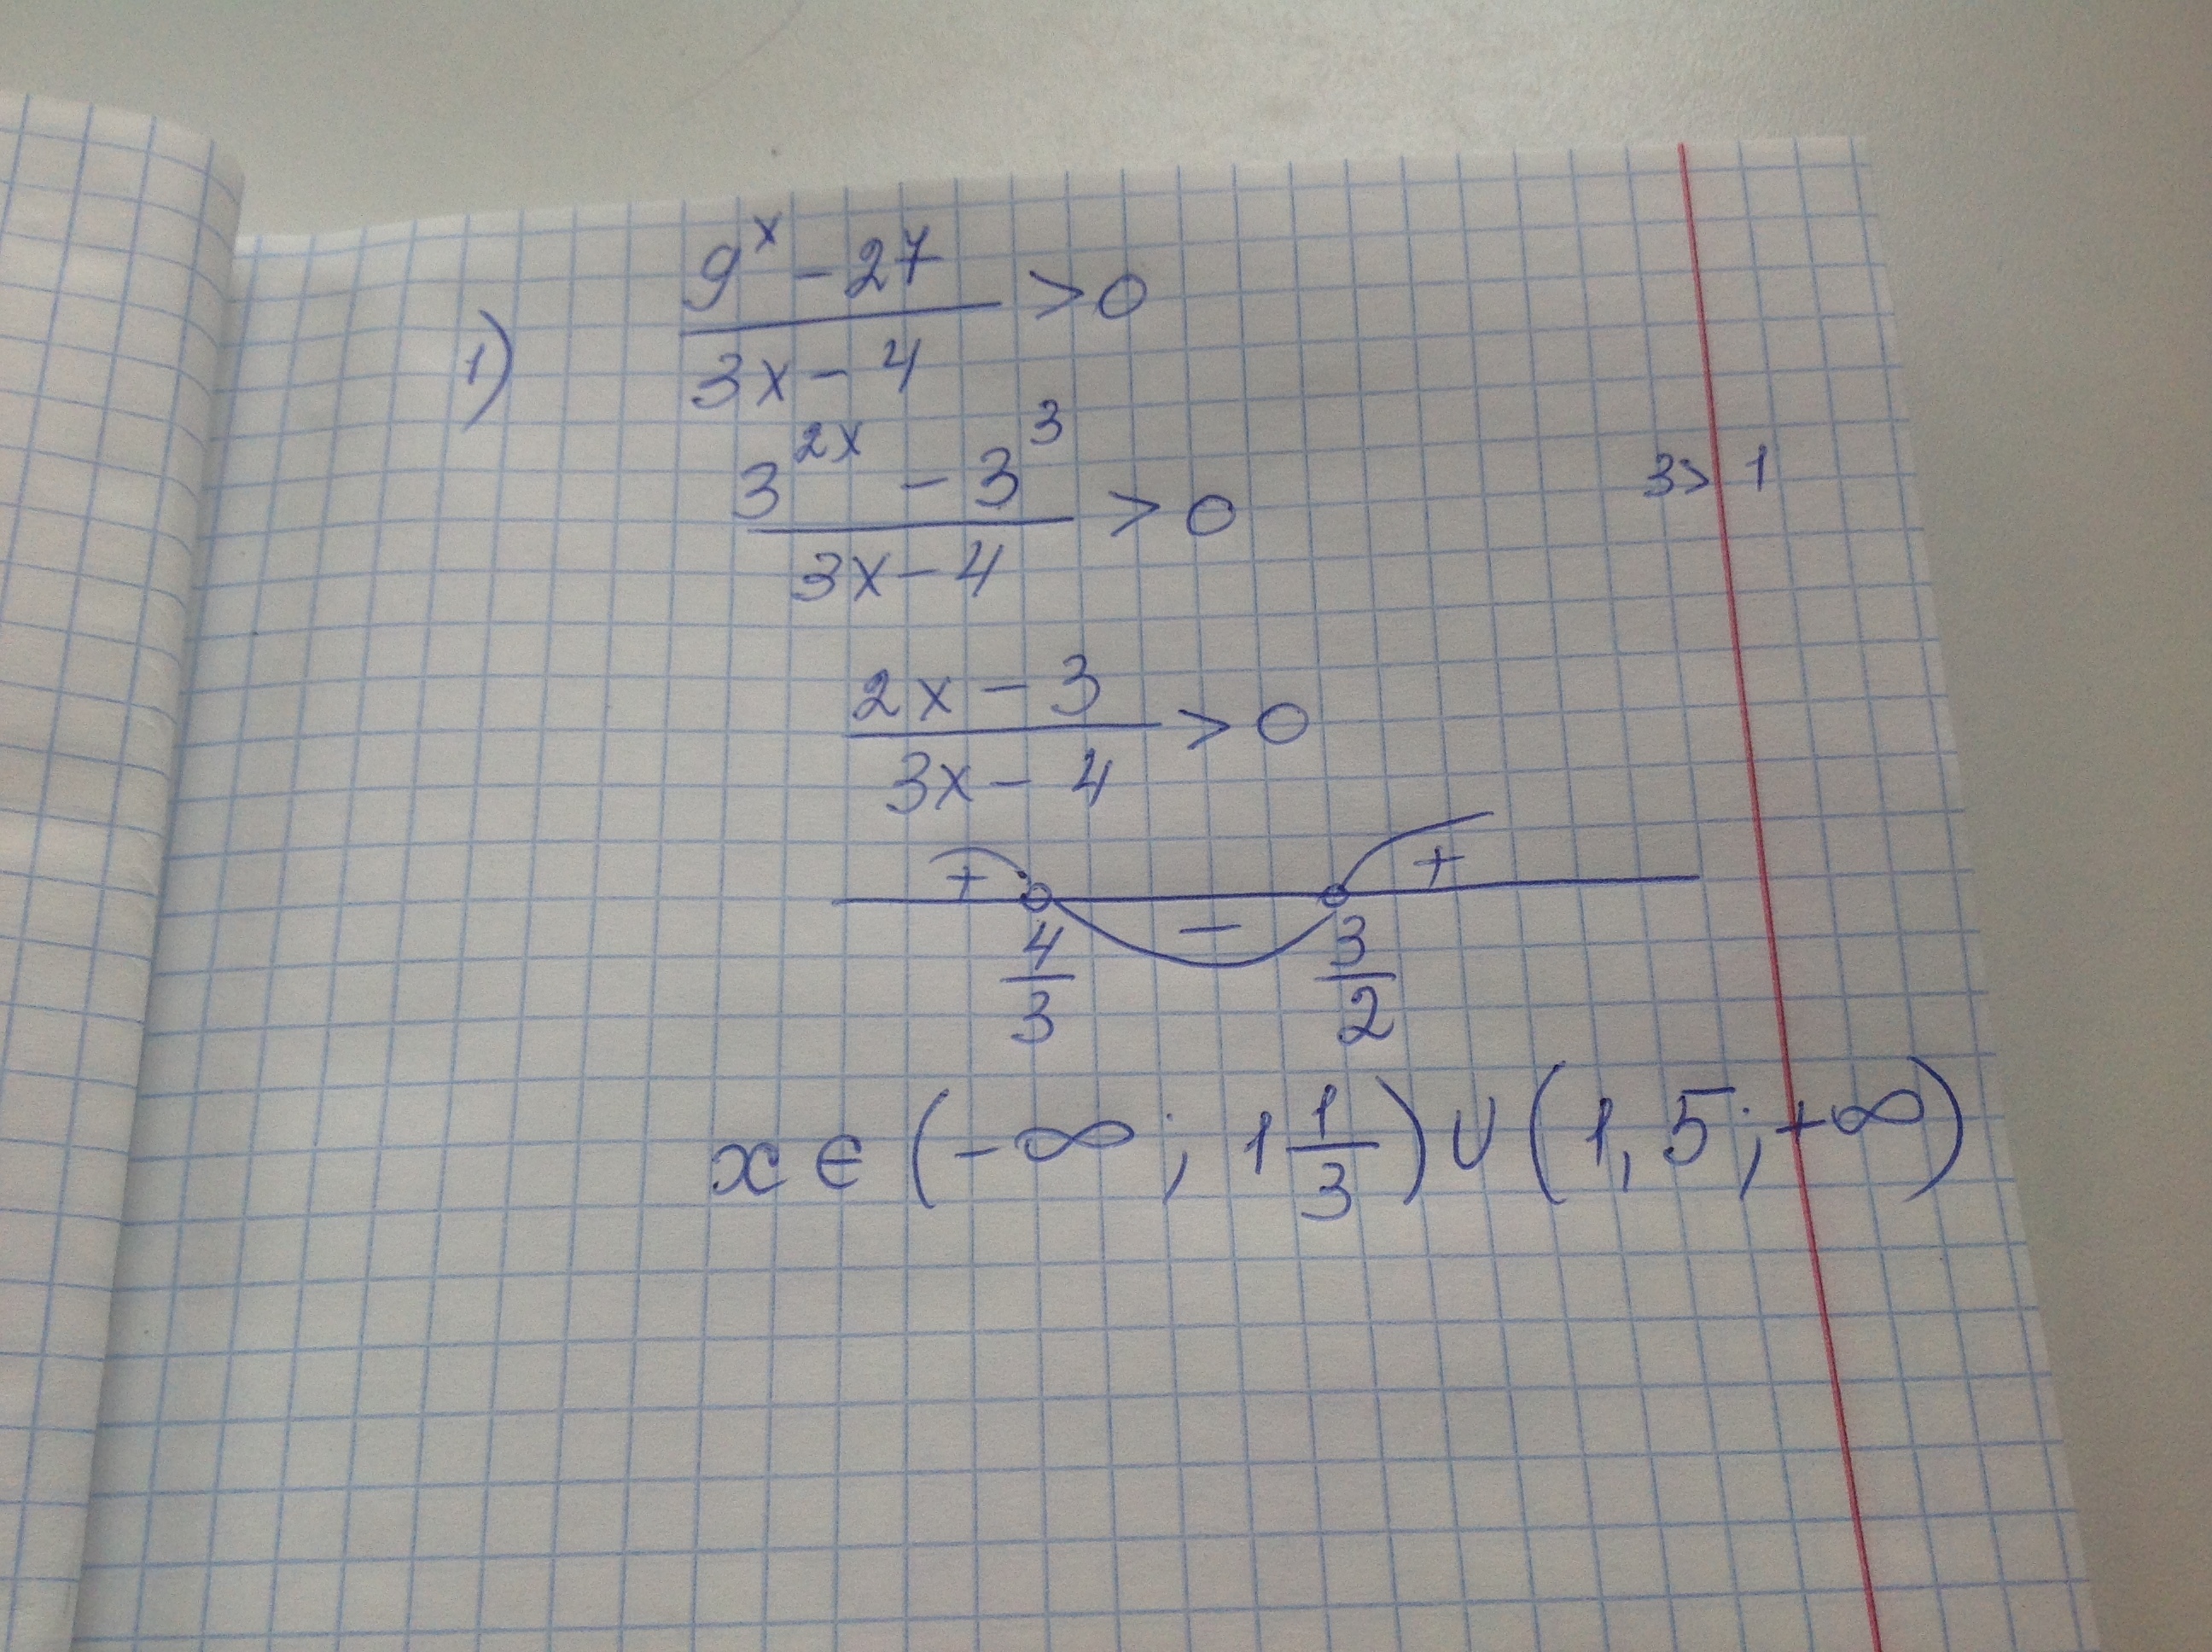 1) (9^x - 27)/(3x - 4) > 0
(3^(2x) - 3^3)/(3x - 4) > 0    3 > 1
(2x - 3)/(3x - 4) > 0
+ - +
4/3 3/2
x ∈ (-∞; 1 1/3) ∪ (1,5; +∞)